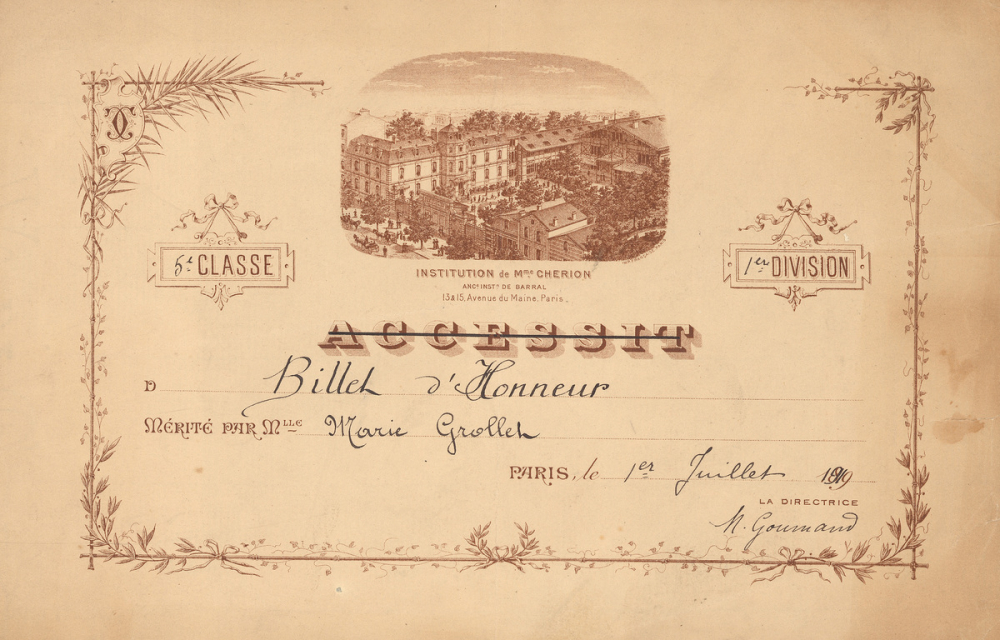 5e CLASSE
1er DIVISION
INSTITUTION de Mme CHERION
ANCne INSTn DE BARRAL
13 & 15, Avenue du Maine, Paris.
ACCESSIT
D Billet d'Honneur
MÉRITÉ PAR MLLE Marie Grollet
PARIS, le 1er Juillet
LA DIRECTRICE
M. Goumand